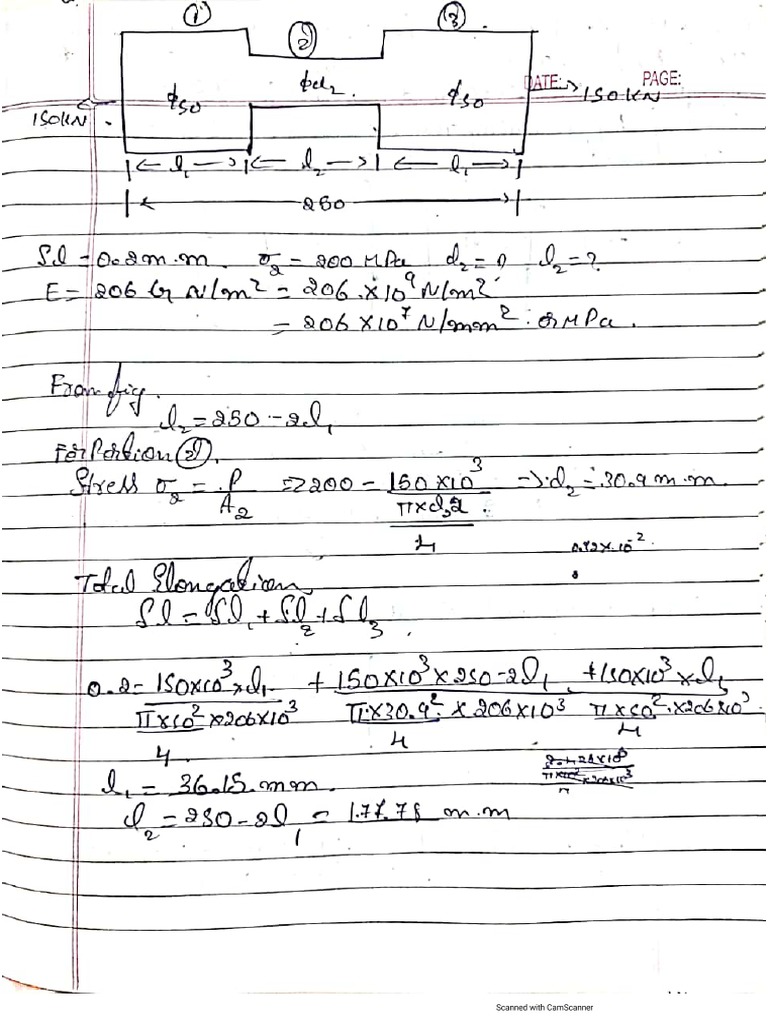 ① ② ③
DATE: PAGE:
ϕ50 ϕd₂. ϕ50 → 150 KN
150KN
|← l₁ →|← l₂ →|← l₁ →|
|← 250 →|
δl = 0.2 m.m. σ₂ = 200 MPa d₂ = ? l₂ = ?
E = 206 G N/m² = 206 × 10⁹ N/m²
= 206 × 10⁷ N/mm² or MPa.
From fig.
l₂ = 250 - 2l₁
For Portion ②,
Stress σ₂ = P/A₂ => 200 = 150 × 10³ / (π × d₂² / 4) → d₂ = 30.9 m.m.
Total Elongation,
δl = δl₁ + δl₂ + δl₃.
0.2 = 150×10³ × l₁ / (π × 50² / 4 × 206×10³) + 150×10³ × 250 - 2l₁ / (π × 30.9² / 4 × 206 × 10³) + 150×10³ × l₁ / (π × 50² / 4 × 206×10³)
l₁ = 36.15 mm.
l₂ = 250 - 2l₁ = 177.78 m.m
Scanned with CamScanner